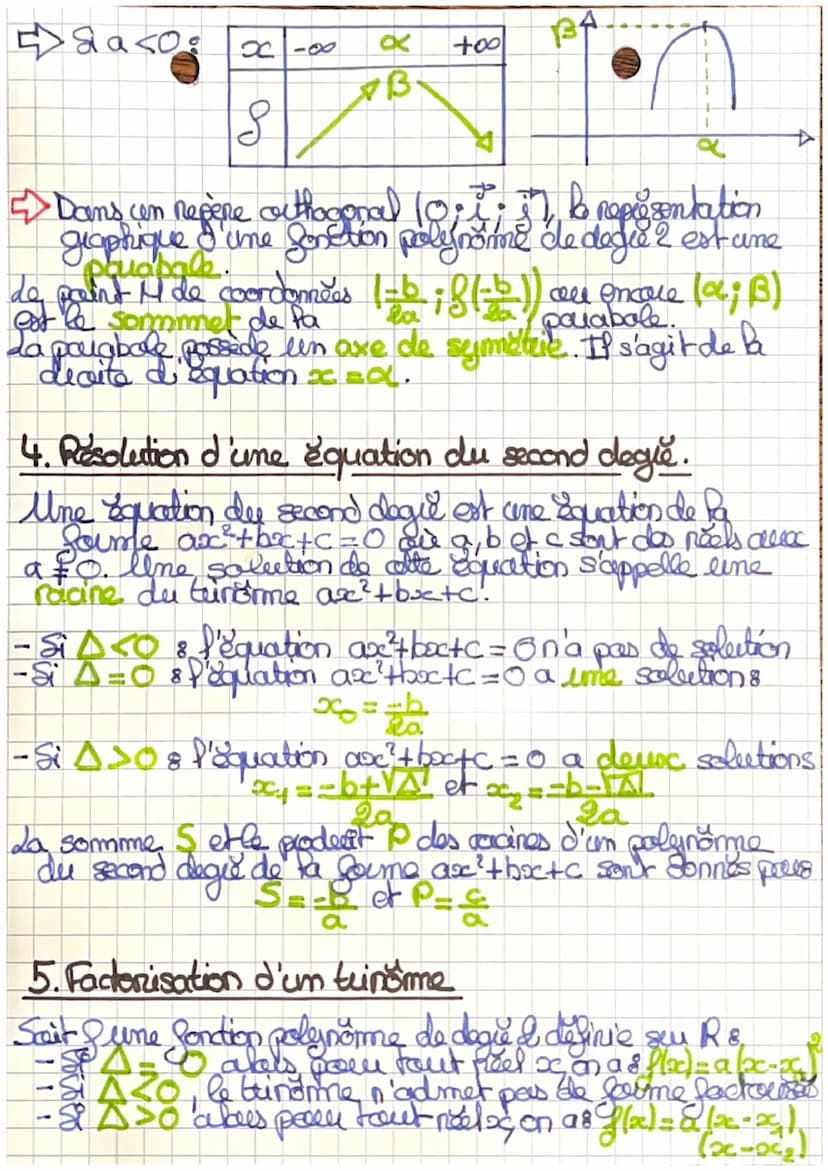 ⇨ Si a<0 :
x -∞ α +∞
f β
β
α
⇨ Dans un repère orthogonal (O; i⃗; j⃗), la représentation
graphique d'une fonction polynôme de degré 2 est une
parabole.
Le point M de coordonnées (-b/2a ; f(-b/2a)) ou encore (α; β)
est le sommmet de la parabole.
La parabole possède un axe de symétrie. Il s'agit de la
droite d'équation x = α.
4. Résolution d'une équation du second degré.
Une équation du second degré est une équation de la
forme ax²+bx+c=0 où a, b et c sont des réels avec
a ≠ 0. Une solution de cette équation s'appelle une
racine du trinôme ax²+bx+c.
- Si Δ<0 : l'équation ax²+bx+c=0 n'a pas de solution
- Si Δ=0 : l'équation ax²+bx+c=0 a une solution :
x₀ = -b/2a
- Si Δ>0 : l'équation ax²+bx+c=0 a deux solutions
x₁ = -b+√Δ/2a et x₂ = -b-√Δ/2a
La sommme S et le produit P des racines d'un polynôme
du second degré de la forme ax²+bx+c sont donnés par :
S = -b/a et P = c/a
5. Factorisation d'un trinôme
Soit f une fonction polynôme de degré 2 définie sur R :
- Si Δ = 0 alors pour tout réel x on a : f(x) = a(x-x₀)²
- Si Δ<0, le trinôme n'admet pas de forme factorisée
- Si Δ>0 alors pour tout réel x, on a : f(x) = a(x-x₁)
(x-x₂)